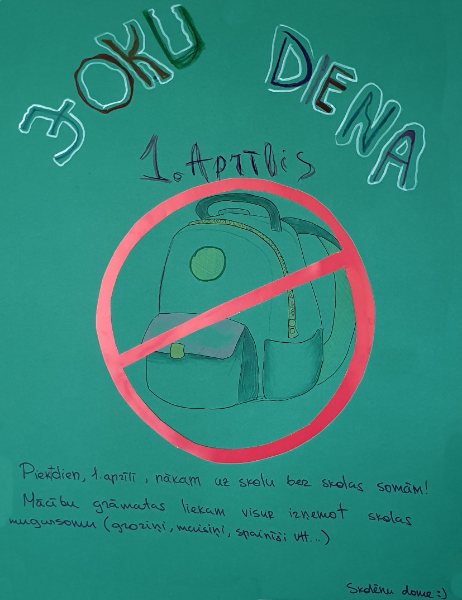 JOKU DIENA
1. Aprīlis
Piektdien, 1. aprīlī, nākam uz skolu bez skolas somām!
Mācību grāmatas liekam visur izņemot skolas
mugursomu (groziņi, maisiņi, spainīši utt...)
Skolēnu dome :)